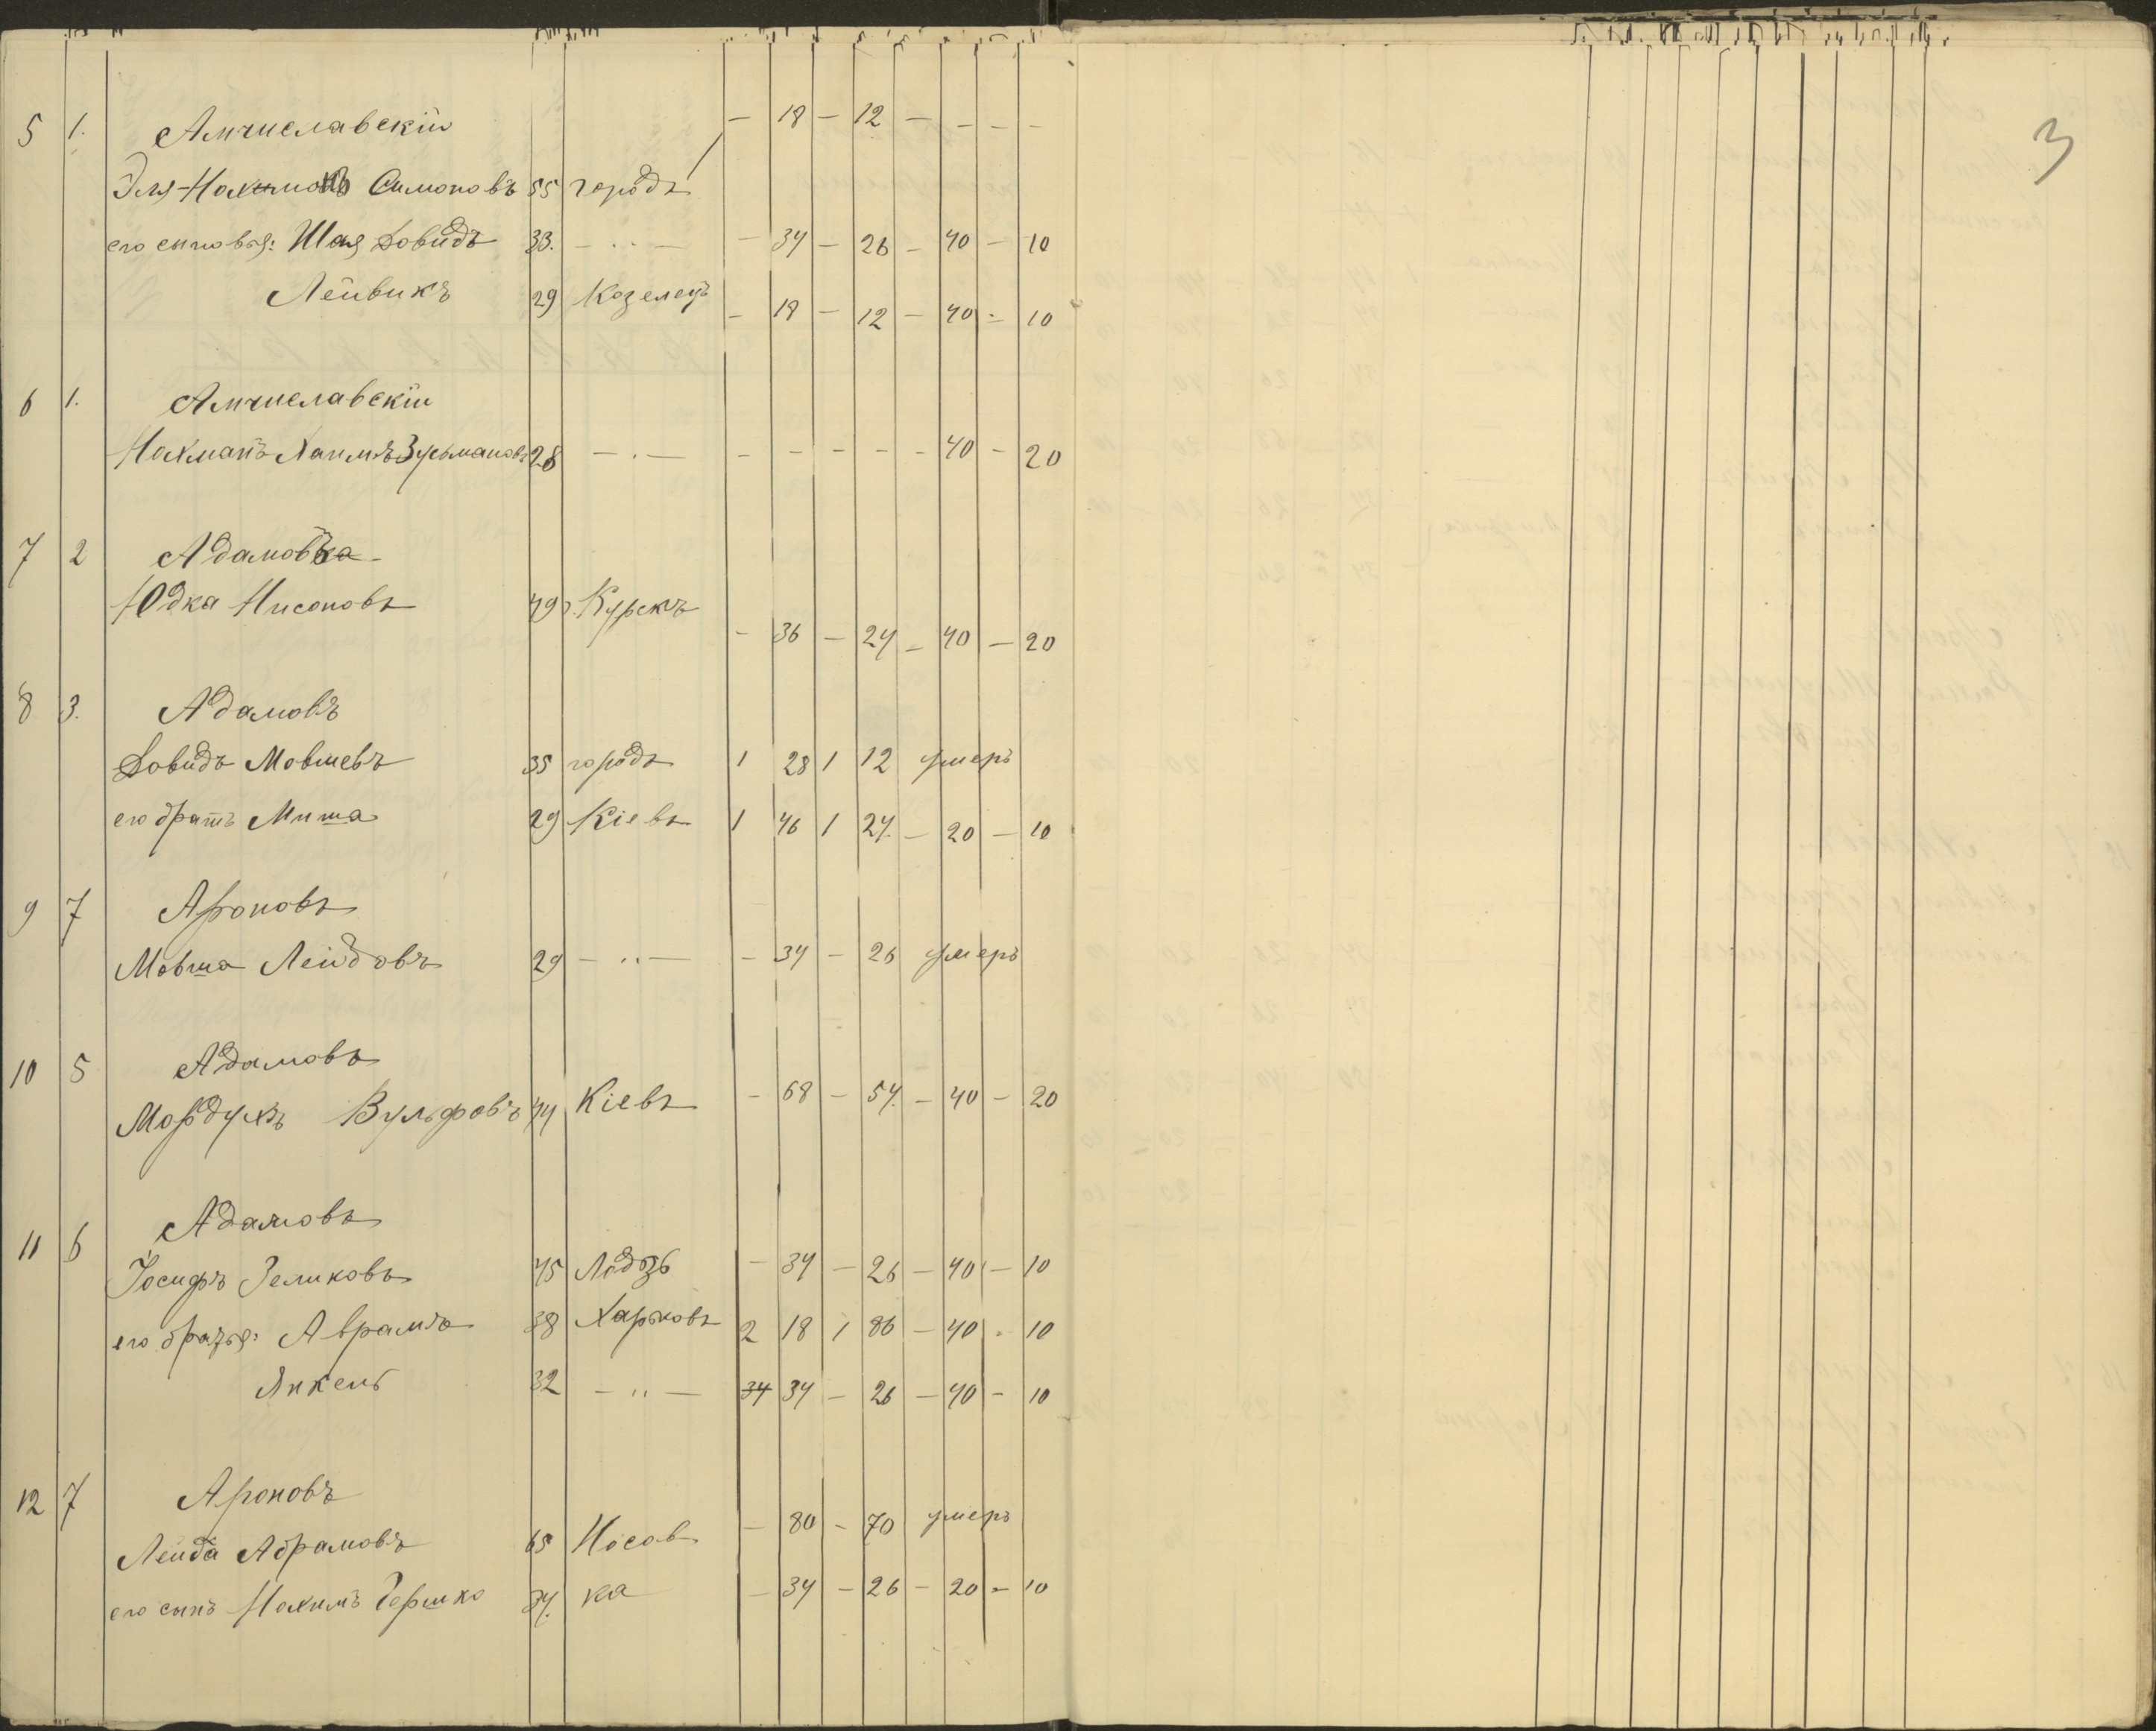 3
5 1. Амчиславскій — 18 — 12 — — — —
Эля-Нохимовъ Симоновъ 55 городъ
его сыновья: Шая Довидъ 33. — " — — 34 — 26 — 40 — 10
Лейвикъ 29 Козелецъ — 18 — 12 — 40 — 10
6 1. Амчиславскій
Нохманъ Хаимъ Зусьмановъ 28 — " — — — — — — 40 — 20
7 2 Адамовъ
Юдка Нисоновъ 49 г. Курскъ — 36 — 24 — 40 — 20
8 3. Адамовъ
Довидъ Мовшевъ 35 городъ 1 28 1 12 умеръ
его братъ Миша 29 Кіевъ 1 46 1 24. — 20 — 10
9 7 Ароновъ
Мовша Лейдовъ 29 — " — — 34 — 26 умеръ
10 5 Адамовъ
Мордухъ Вульфовъ 44 Кіевъ — 68 — 54. — 40 — 20
11 6 Адамовъ
Іосифъ Зеликовъ 45 Лодзь — 34 — 26 — 40 — 10
его братья: Аврамъ 38 Харьковъ 2 18 1 86 — 40 — 10
Янкель 32 — " — 34 34 — 26 — 40 — 10
12 7 Ароновъ
Лейда Абрамовъ 65 Носов — 80 — 70 умеръ
его сынъ Нохимъ Гершко 34. ка — 34 — 26 — 20 — 10